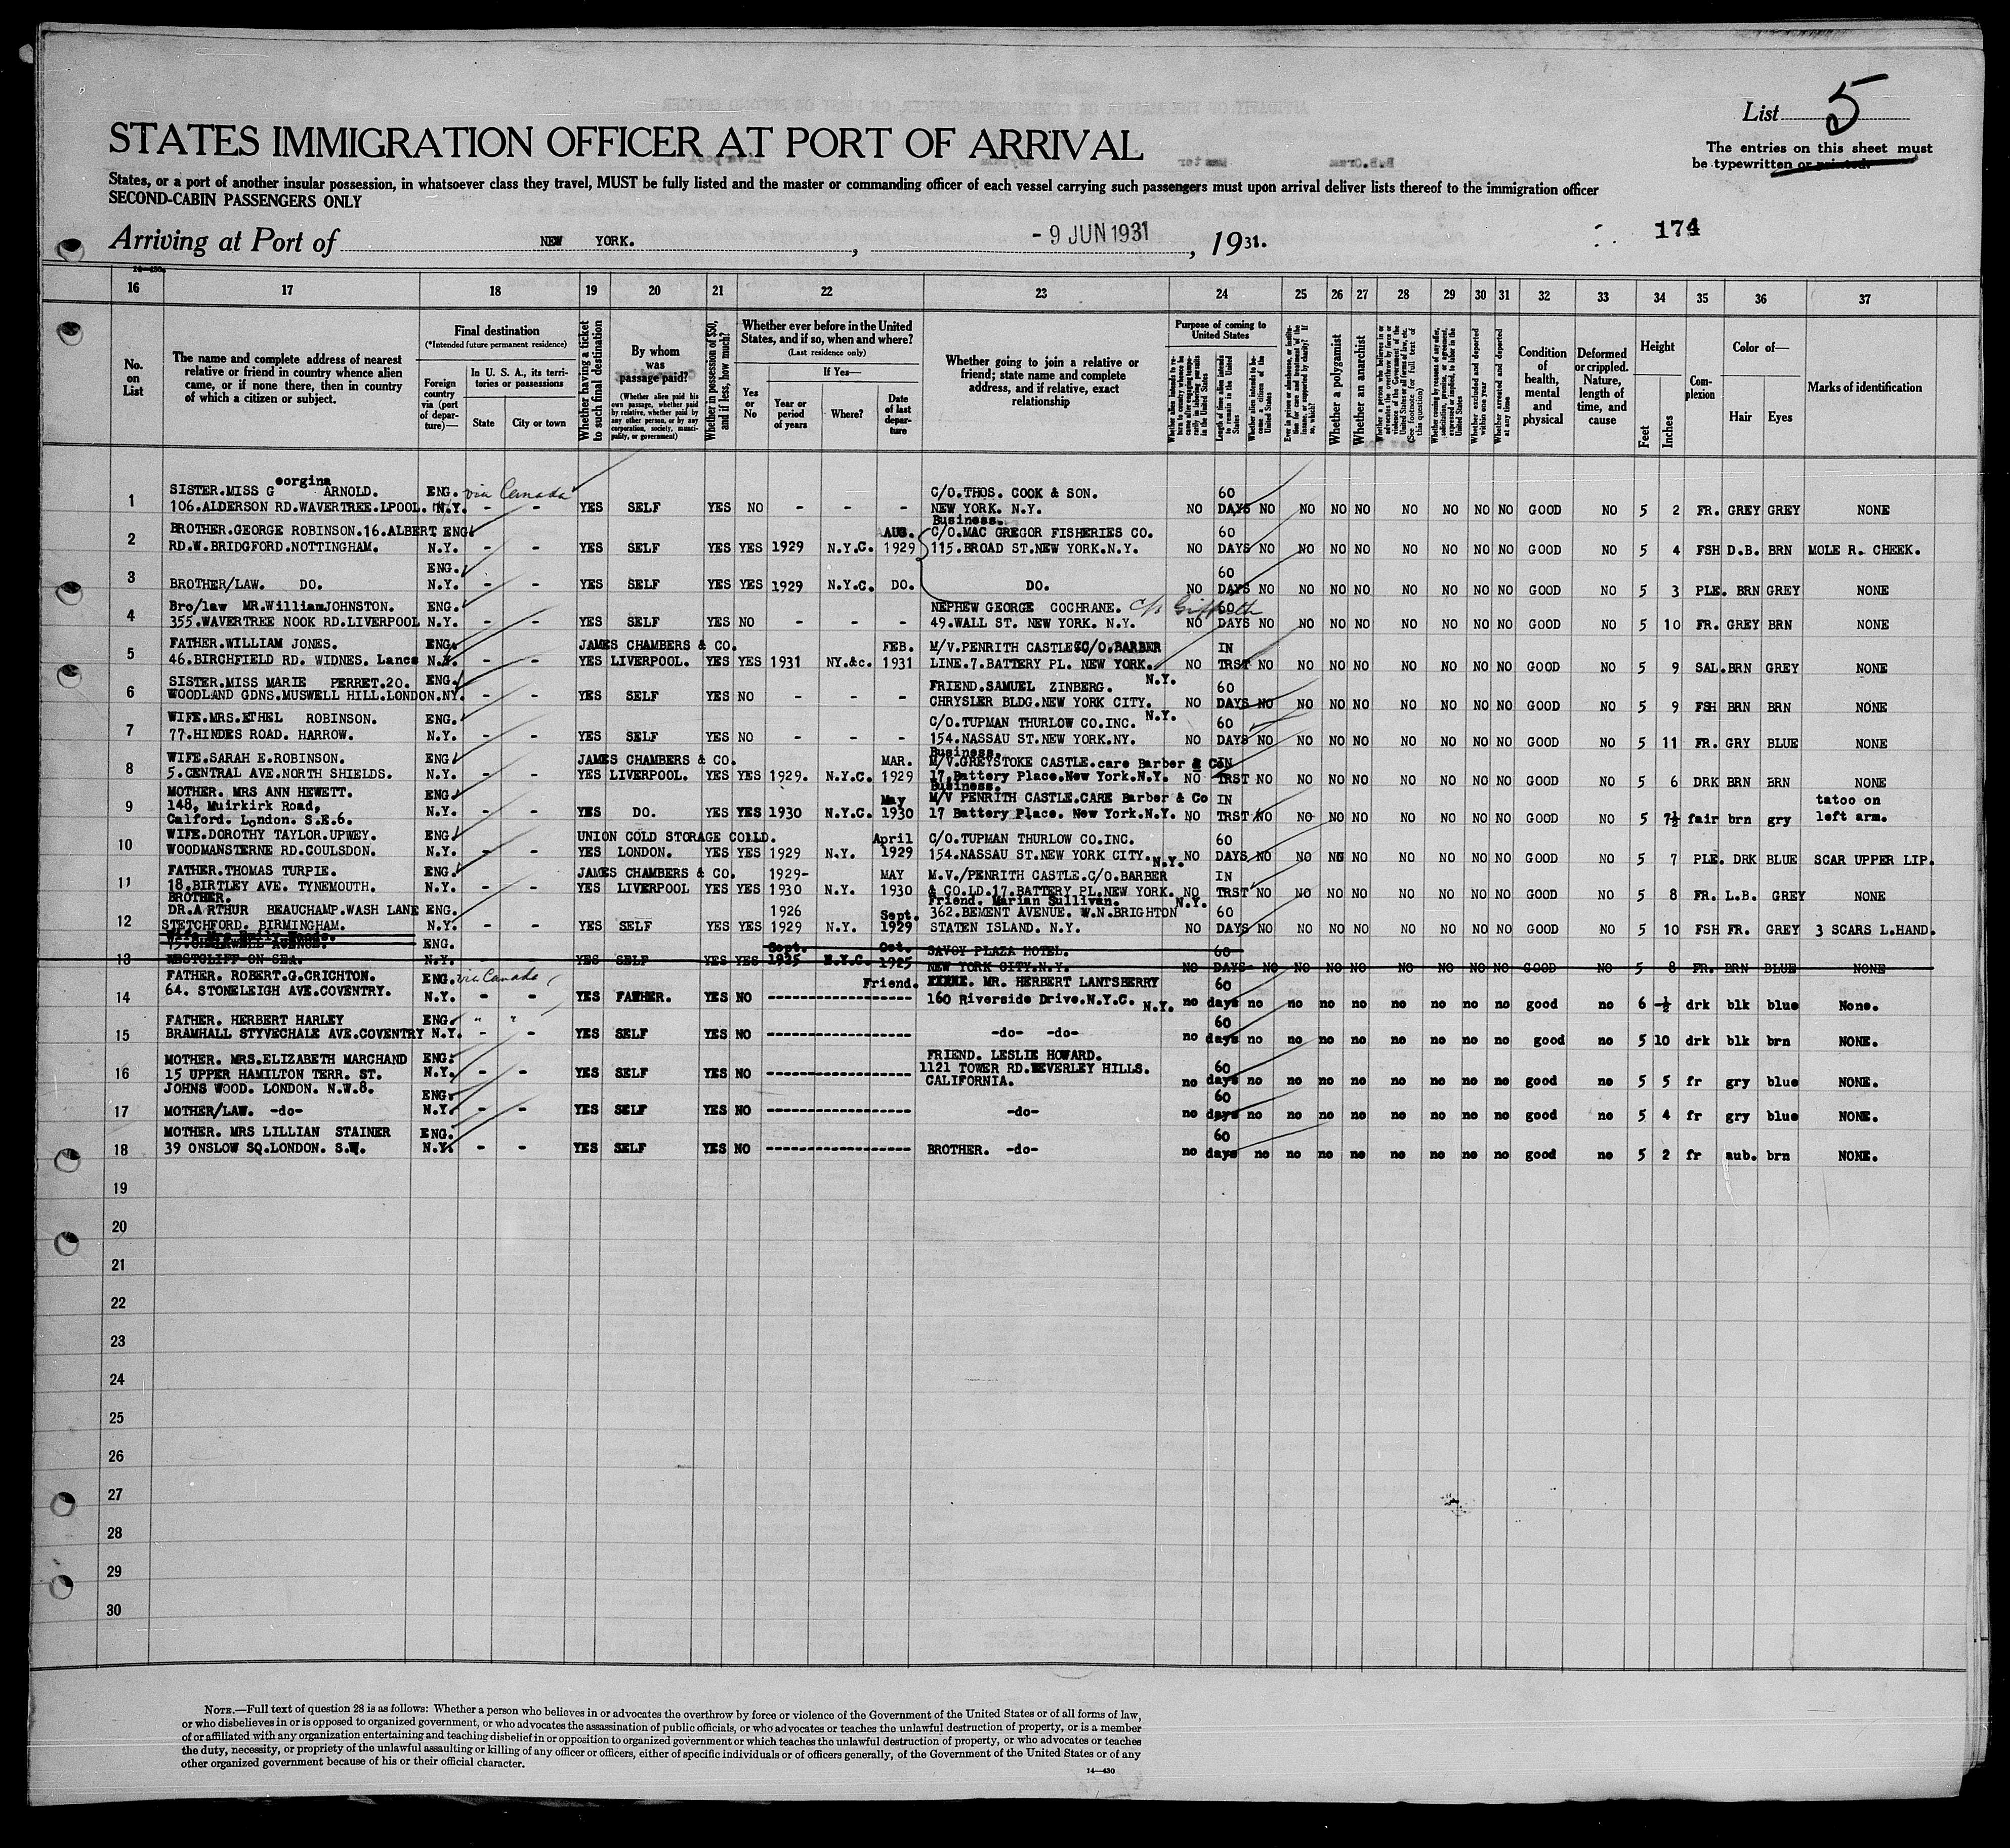 List 5
STATES IMMIGRATION OFFICER AT PORT OF ARRIVAL
The entries on this sheet must
be typewritten or printed.
States, or a port of another insular possession, in whatsoever class they travel, MUST be fully listed and the master or commanding officer of each vessel carrying such passengers must upon arrival deliver lists thereof to the immigration officer
SECOND-CABIN PASSENGERS ONLY
Arriving at Port of NEW YORK. , - 9 JUN 1931 , 1931.
174
14—430
16 17 18 19 20 21 22 23 24 25 26 27 28 29 30 31 32 33 34 35 36 37
No. on List
The name and complete address of nearest relative or friend in country whence alien came, or if none there, then in country of which a citizen or subject.
Final destination
(*Intended future permanent residence)
Foreign country via (port of departure)—
In U. S. A., its territories or possessions
State
City or town
Whether having a ticket to such final destination
By whom was passage paid?
(Whether alien paid his own passage, whether paid by relative, whether paid by any other person, or by any corporation, society, municipality, or government)
Whether in possession of $50, and if less, how much?
Whether ever before in the United States, and if so, when and where?
(Last residence only)
Yes or No
If Yes—
Year or period of years
Where?
Date of last departure
Whether going to join a relative or friend; state name and complete address, and if relative, exact relationship
Purpose of coming to United States
Length of time alien intends to remain in the United States
Whether alien intends to become a citizen of the United States
Whether a polygamist
Whether an anarchist
Whether excluded and deported within one year
Whether arrested and deported at any time
Condition of health, mental and physical
Deformed or crippled. Nature, length of time, and cause
Height
Feet
Inches
Complexion
Color of—
Hair
Eyes
Marks of identification
1 SISTER.MISS Georgina ARNOLD. ENG. via Canada C/O.THOS. COOK & SON. 60
106.ALDERSON RD.WAVERTREE.LPOOL. N.Y. - - YES SELF YES NO - - - NEW YORK. N.Y. NO DAYS NO NO NO NO NO NO NO NO GOOD NO 5 2 FR. GREY GREY NONE
Business.
2 BROTHER.GEORGE ROBINSON.16.ALBERT ENG. AUG. C/O.MAC GREGOR FISHERIES CO. 60
RD.W.BRIDGFORD.NOTTINGHAM. N.Y. - - YES SELF YES YES 1929 N.Y.C. 1929 115.BROAD ST.NEW YORK.N.Y. NO DAYS NO NO NO NO NO NO NO NO GOOD NO 5 4 FSH D.B. BRN MOLE R. CHEEK.
ENG. 60
3 BROTHER/LAW. DO. N.Y. - - YES SELF YES YES 1929 N.Y.C. DO. DO. NO DAYS NO NO NO NO NO NO NO NO GOOD NO 5 3 PLE. BRN GREY NONE
4 Bro/law MR.William JOHNSTON. ENG. NEPHEW GEORGE COCHRANE. c/o Griffith 60
355.WAVERTREE NOOK RD.LIVERPOOL N.Y. - - YES SELF YES NO - - - 49.WALL ST. NEW YORK. N.Y. NO DAYS NO NO NO NO NO NO NO NO GOOD NO 5 10 FR. GREY BRN NONE
5 FATHER.WILLIAM JONES. ENG. JAMES CHAMBERS & CO. FEB. M/V.PENRITH CASTLE C/O.BARBER IN
46.BIRCHFIELD RD. WIDNES. Lancs N.Y. - - YES LIVERPOOL. YES YES 1931 NY.&c. 1931 LINE.7.BATTERY PL. NEW YORK. NO TRST NO NO NO NO NO NO NO NO GOOD NO 5 9 SAL. BRN GREY NONE
N.Y.
6 SISTER.MISS MARIE PERRET.20. ENG. FRIEND.SAMUEL ZINBERG. 60
WOODLAND GDNS.MUSWELL HILL.LONDON.NY. - - YES SELF YES NO - - - CHRYSLER BLDG.NEW YORK CITY. NO DAYS NO NO NO NO NO NO NO NO GOOD NO 5 9 FSH BRN BRN NONE
N.Y.
7 WIFE.MRS.ETHEL ROBINSON. ENG. C/O.TUPMAN THURLOW CO.INC. 60
77.HINDES ROAD. HARROW. N.Y. - - YES SELF YES NO - - - 154.NASSAU ST.NEW YORK.NY. NO DAYS NO NO NO NO NO NO NO NO GOOD NO 5 11 FR. GRY BLUE NONE
Business.
8 WIFE.SARAH E.ROBINSON. ENG JAMES CHAMBERS & CO. MAR. M/V.GREYSTOKE CASTLE.care Barber & Co IN
5.CENTRAL AVE.NORTH SHIELDS. N.Y. - - YES LIVERPOOL. YES YES 1929. N.Y.C. 1929 17.Battery Place.New York.N.Y. NO TRST NO NO NO NO NO NO NO NO GOOD NO 5 6 DRK BRN BRN NONE
Business.
9 MOTHER. MRS ANN HEWETT. ENG May M/V PENRITH CASTLE.CARE Barber & Co IN tatoo on
148, Muirkirk Road, N.Y. - - YES DO. YES YES 1930 N.Y.C. 1930 17 Battery Place. New York.N.Y. NO TRST NO NO NO NO NO NO NO NO GOOD NO 5 7½ fair brn gry left arm.
Calford. London. S.E.6.
10 WIFE.DOROTHY TAYLOR.UPWEY. ENG UNION COLD STORAGE CO.LD. April C/O.TUPMAN THURLOW CO.INC. 60
WOODMANSTERNE RD.COULSDON. N.Y. - - YES LONDON. YES YES 1929 N.Y. 1929 154.NASSAU ST.NEW YORK CITY. N.Y. NO DAYS NO NO NO NO NO NO NO NO GOOD NO 5 7 PLE. DRK BLUE SCAR UPPER LIP.
11 FATHER.THOMAS TURPIE. ENG. JAMES CHAMBERS & CO. 1929- MAY M.V./PENRITH CASTLE.C/O.BARBER IN
18.BIRTLEY AVE. TYNEMOUTH. N.Y. - - YES LIVERPOOL YES YES 1930 N.Y. 1930 & CO.LD.17.BATTERY PL.NEW YORK. N.Y. NO TRST NO NO NO NO NO NO NO NO GOOD NO 5 8 FR. L.B. GREY NONE
BROTHER. Friend. Marian Sullivan.
12 DR.ARTHUR BEAUCHAMP.WASH LANE ENG. 1926 Sept. 362.BEMENT AVENUE. W.N.BRIGHTON 60
STETCHFORD. BIRMINGHAM. N.Y. - - YES SELF YES YES 1929 N.Y. 1929 STATEN ISLAND. N.Y. NO DAYS NO NO NO NO NO NO NO NO GOOD NO 5 10 FSH FR. GREY 3 SCARS L.HAND.
Wife Mrs Emily Woods.
ENG. Sept. Oct. SAVOY PLAZA HOTEL. 60
13 WESTCLIFF ON SEA. N.Y. YES SELF YES YES 1925 N.Y.C. 1925 NEW YORK CITY.N.Y. NO DAYS NO NO NO NO NO NO NO NO GOOD NO 5 8 FR. BRN BLUE NONE
FATHER. ROBERT.G.CRICHTON. ENG. via Canada Friend. MR. HERBERT LANTSBERRY 60
14 64. STONELEIGH AVE.COVENTRY. N.Y. - - YES FATHER. YES NO ------------------ 160 Riverside Drive.N.Y.C. N.Y. no days no no no no no no no no good no 6 -½ drk blk blue None.
FATHER. HERBERT HARLEY ENG. " " 60
15 BRAMHALL STYVECHALE AVE.COVENTRY N.Y. - - YES SELF YES NO ------------------ -do- -do- no days no no no no no no no no good no 5 10 drk blk brn NONE.
MOTHER. MRS.ELIZABETH MARCHAND ENG. FRIEND. LESLIE HOWARD.
16 15 UPPER HAMILTON TERR. ST. N.Y. - - YES SELF YES NO ------------------ 1121 TOWER RD.BEVERLEY HILLS. 60
JOHNS WOOD. LONDON. N.W.8. CALIFORNIA. no days no no no no no no no no good no 5 5 fr gry blue NONE.
ENG. 60
17 MOTHER/LAW. -do- N.Y. - - YES SELF YES NO ------------------ -do- no days no no no no no no no no good no 5 4 fr gry blue NONE.
MOTHER. MRS LILLIAN STAINER ENG. 60
18 39 ONSLOW SQ.LONDON. S.W. N.Y. - - YES SELF YES NO ------------------ BROTHER. -do- no days no no no no no no no no good no 5 2 fr aub. brn NONE.
19
20
21
22
23
24
25
26
27
28
29
30
NOTE.—Full text of question 28 is as follows: Whether a person who believes in or advocates the overthrow by force or violence of the Government of the United States or of all forms of law,
or who disbelieves in or is opposed to organized government, or who advocates the assassination of public officials, or who advocates or teaches the unlawful destruction of property, or is a member
of or affiliated with any organization entertaining and teaching disbelief in or opposition to organized government or which teaches the unlawful destruction of property, or who advocates or teaches
the duty, necessity, or propriety of the unlawful assaulting or killing of any officer or officers, either of specific individuals or of officers generally, of the Government of the United States or of any
other organized government because of his or their official character.
14—430